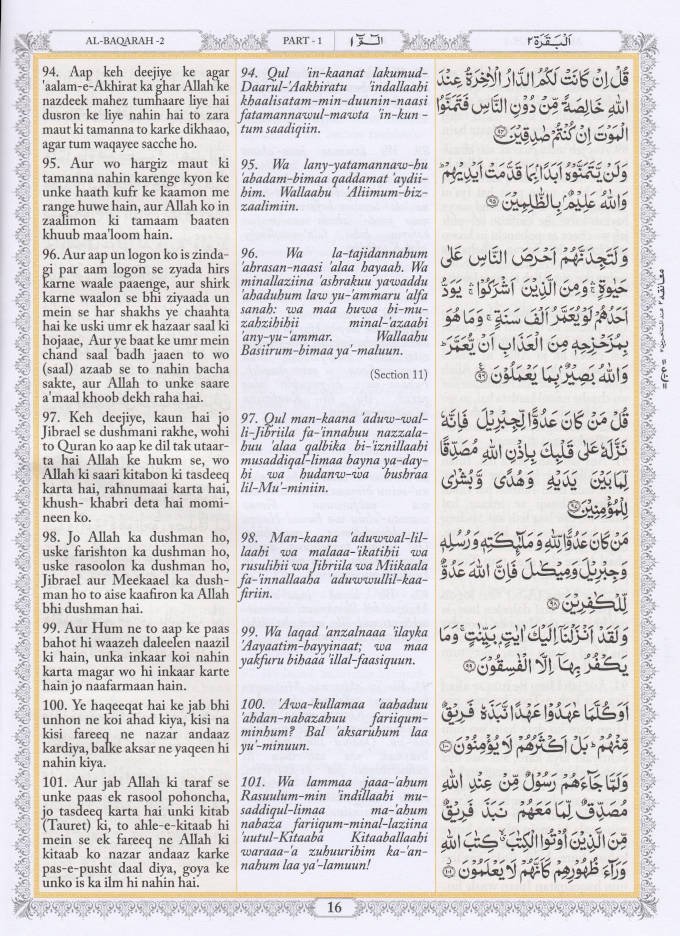 AL-BAQARAH -2
PART - 1
الٓمّٓ ١
اَلْبَقَرَة ٢
94. Aap keh deejiye ke agar
'aalam-e-Akhirat ka ghar Allah ke
nazdeek mahez tumhaare liye hai
dusron ke liye nahin hai to zara
maut ki tamanna to karke dikhaao,
agar tum waqayee sacche ho.
95. Aur wo hargiz maut ki
tamanna nahin karenge kyon ke
unke haath kufr ke kaamon me
range huwe hain, aur Allah ko in
zaalimon ki tamaam baaten
khuub maa'loom hain.
96. Aur aap un logon ko is zinda-
gi par aam logon se zyada hirs
karne waale paaenge, aur shirk
karne waalon se bhi ziyaada un
mein se har shakhs ye chaahta
hai ke uski umr ek hazaar saal ki
hojaae, Aur ye baat ke umr mein
chand saal badh jaaen to wo
(saal) azaab se to nahin bacha
sakte, aur Allah to unke saare
a'maal khoob dekh raha hai.
97. Keh deejiye, kaun hai jo
Jibrael se dushmani rakhe, wohi
to Quran ko aap ke dil tak utaar-
ta hai Allah ke hukm se, wo
Allah ki saari kitabon ki tasdeeq
karta hai, rahnumaai karta hai,
khush- khabri deta hai momi-
neen ko.
98. Jo Allah ka dushman ho,
uske farishton ka dushman ho,
uske rasoolon ka dushman ho,
Jibrael aur Meekaael ka dush-
man ho to aise kaafiron ka Allah
bhi dushman hai.
99. Aur Hum ne to aap ke paas
bahot hi waazeh daleelen naazil
ki hain, unka inkaar koi nahin
karta magar wo hi inkaar karte
hain jo naafarmaan hain.
100. Ye haqeeqat hai ke jab bhi
unhon ne koi ahad kiya, kisi na
kisi fareeq ne nazar andaaz
kardiya, balke aksar ne yaqeen hi
nahin kiya.
101. Aur jab Allah ki taraf se
unke paas ek rasool pohoncha,
jo tasdeeq karta hai unki kitab
(Tauret) ki, to ahle-e-kitaab hi
mein se ek fareeq ne Allah ki
kitaab ko nazar andaaz karke
pas-e-pusht daal diya, goya ke
unko is ka ilm hi nahin hai.
94. Qul 'in-kaanat lakumud-
Daarul-'Aakhiratu 'indallaahi
khaalisatam-min-duunin-naasi
fatamannawul-mawta 'in-kun -
tum saadiqiin.
95. Wa lany-yatamannaw-hu
'abadam-bimaa qaddamat 'aydii-
him. Wallaahu 'Aliimum-biz-
zaalimiin.
96. Wa la-tajidannahum
'ahrasan-naasi 'alaa hayaah. Wa
minallaziina 'ashrakuu yawaddu
'ahaduhum law yu-'ammaru 'alfa
sanah: wa maa huwa bi-mu-
zahzihihii minal-'azaabi
'any-yu-'ammar. Wallaahu
Basiirum-bimaa ya'-maluun.
(Section 11)
97. Qul man-kaana 'aduw-wal-
li-Jibriila fa-'innahuu nazzala-
huu 'alaa qalbika bi-'iznillaahi
musaddiqal-limaa bayna ya-day-
hi wa hudanw-wa bushraa
lil-Mu'-miniin.
98. Man-kaana 'aduwwal-lil-
laahi wa malaaa-'ikatihii wa
rusulihii wa Jibriila wa Miikaala
fa-'innallaaha 'aduwwullil-kaa-
firiin.
99. Wa laqad 'anzalnaaa 'ilayka
'Aayaatim-bayyinaat; wa maa
yakfuru bihaaa 'illal-faasiquun.
100. 'Awa-kullamaa 'aahaduu
'ahdan-nabazahuu fariiqum-
minhum? Bal 'aksaruhum laa
yu'-minuun.
101. Wa lammaa jaaa-'ahum
Rasuulum-min 'indillaahi mu-
saddiqul-limaa ma-'ahum
nabaza fariiqum-minal-laziina
'uutul-Kitaaba Kitaaballaahi
waraaa-'a zuhuurihim ka-'an-
nahum laa ya'-lamuun!
قُلْ اِنْ كَانَتْ لَكُمُ الدَّارُ الْاٰخِرَةُ عِنْدَ
اللّٰهِ خَالِصَةً مِّنْ دُوْنِ النَّاسِ فَتَمَنَّوُا
الْمَوْتَ اِنْ كُنْتُمْ صٰدِقِيْنَ ٩٤
وَلَنْ يَّتَمَنَّوْهُ اَبَدًۢا بِمَا قَدَّمَتْ اَيْدِيْهِمْ ؕ
وَاللّٰهُ عَلِيْمٌۢ بِالظّٰلِمِيْنَ ٩٥
وَلَتَجِدَنَّهُمْ اَحْرَصَ النَّاسِ عَلٰى
حَيٰوةٍ ۛ وَمِنَ الَّذِيْنَ اَشْرَكُوْا ۛ يَوَدُّ
اَحَدُهُمْ لَوْ يُعَمَّرُ اَلْفَ سَنَةٍ ۚ وَمَا هُوَ
بِمُزَحْزِحِهٖ مِنَ الْعَذَابِ اَنْ يُّعَمَّرَ ؕ
وَاللّٰهُ بَصِيْرٌۢ بِمَا يَعْمَلُوْنَ ٩٦
قُلْ مَنْ كَانَ عَدُوًّا لِّجِبْرِيْلَ فَاِنَّهٗ
نَزَّلَهٗ عَلٰى قَلْبِكَ بِاِذْنِ اللّٰهِ مُصَدِّقًا
لِّمَا بَيْنَ يَدَيْهِ وَهُدًى وَّبُشْرٰى
لِلْمُؤْمِنِيْنَ ٩٧
مَنْ كَانَ عَدُوًّا لِّلّٰهِ وَمَلٰٓئِكَتِهٖ وَرُسُلِهٖ
وَجِبْرِيْلَ وَمِيْكٰىلَ فَاِنَّ اللّٰهَ عَدُوٌّ
لِّلْكٰفِرِيْنَ ٩٨
وَلَقَدْ اَنْزَلْنَاۤ اِلَيْكَ اٰيٰتٍۭ بَيِّنٰتٍ ۚ وَمَا
يَكْفُرُ بِهَاۤ اِلَّا الْفٰسِقُوْنَ ٩٩
اَوَكُلَّمَا عٰهَدُوْا عَهْدًا نَّبَذَهٗ فَرِيْقٌ
مِّنْهُمْ ؕ بَلْ اَكْثَرُهُمْ لَا يُؤْمِنُوْنَ ١٠٠
وَلَمَّا جَآءَهُمْ رَسُوْلٌ مِّنْ عِنْدِ اللّٰهِ
مُصَدِّقٌ لِّمَا مَعَهُمْ نَبَذَ فَرِيْقٌ
مِّنَ الَّذِيْنَ اُوْتُوا الْكِتٰبَ ۙ كِتٰبَ اللّٰهِ
وَرَآءَ ظُهُوْرِهِمْ كَاَنَّهُمْ لَا يَعْلَمُوْنَ ١٠١
16